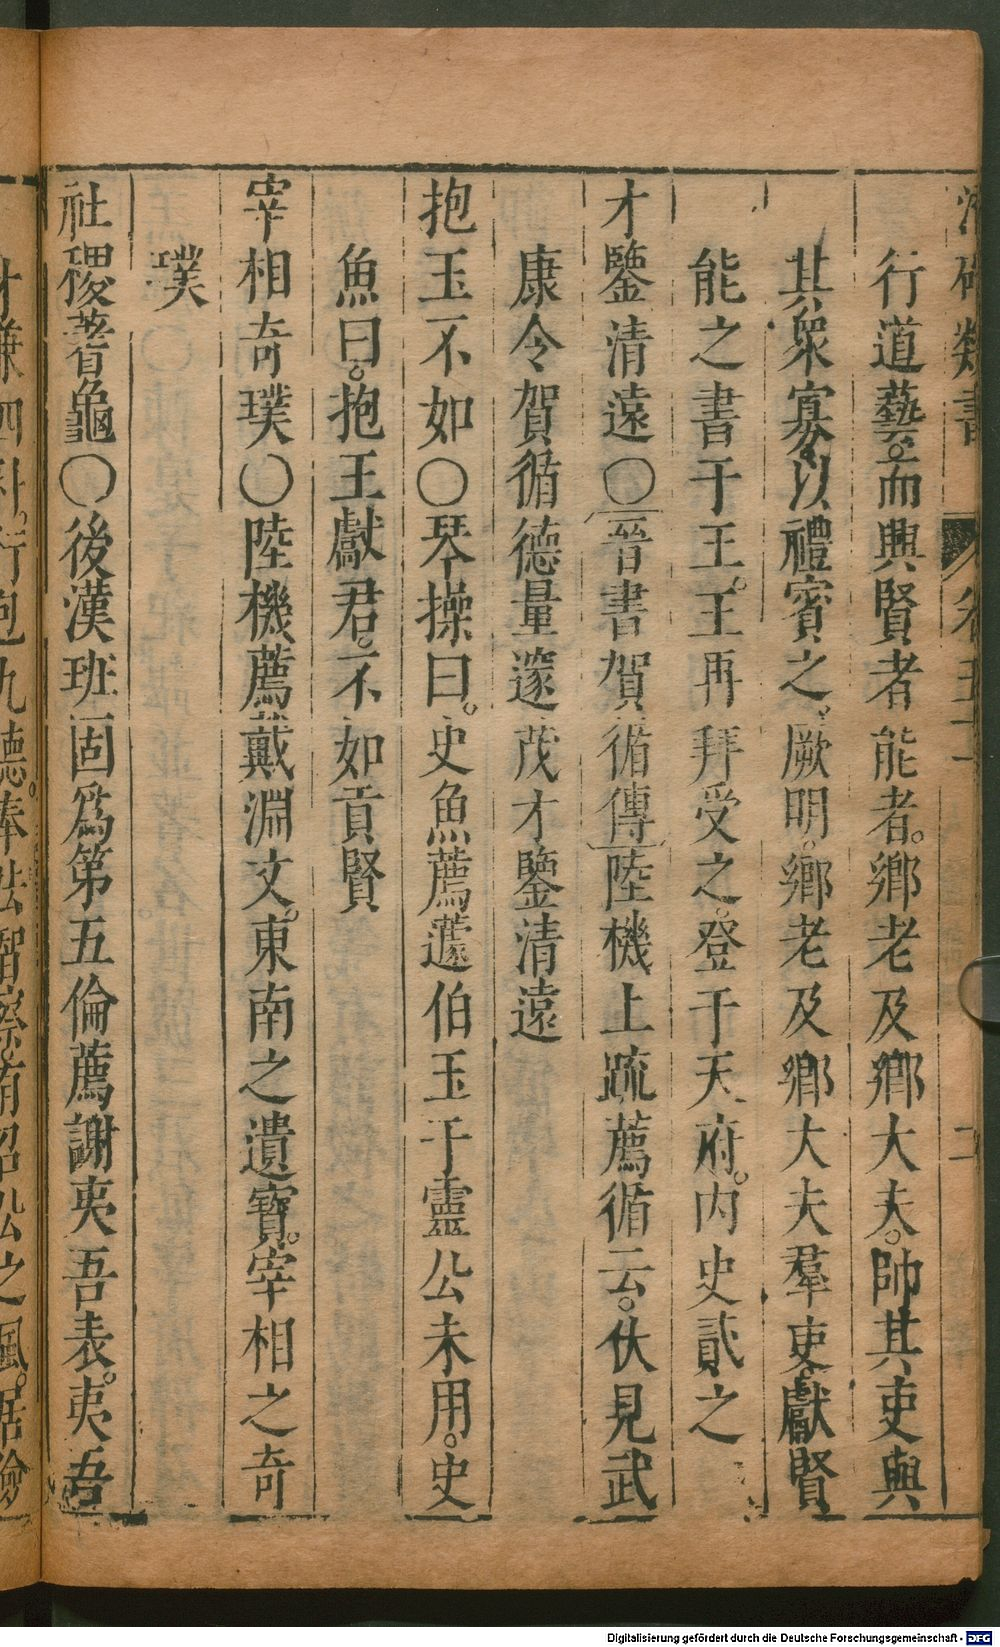 類書
行道藝。而興賢者能者。鄉老及鄉大夫。帥其吏與
其衆寡。以禮賓之。厥明。鄉老及鄉大夫羣吏。獻賢
能之書于王。王再拜受之。登于天府。內史貳之
才鑒清遠〇晉書賀循傳陸機上疏薦循云。伏見武
康令賀循德量邃茂才鑒清遠
抱玉不如〇琴操曰。史魚薦蘧伯玉于靈公未用。史
魚曰。抱玉獻君。不如貢賢
宰相奇璞〇陸機薦戴淵文。東南之遺寶。宰相之奇
璞
社稷蓍龜〇後漢班固爲第五倫薦謝夷吾表。夷吾
才兼四科。行包九德。奉法智察有召公之風。居儉
Digitalisierung gefördert durch die Deutsche Forschungsgemeinschaft - DFG